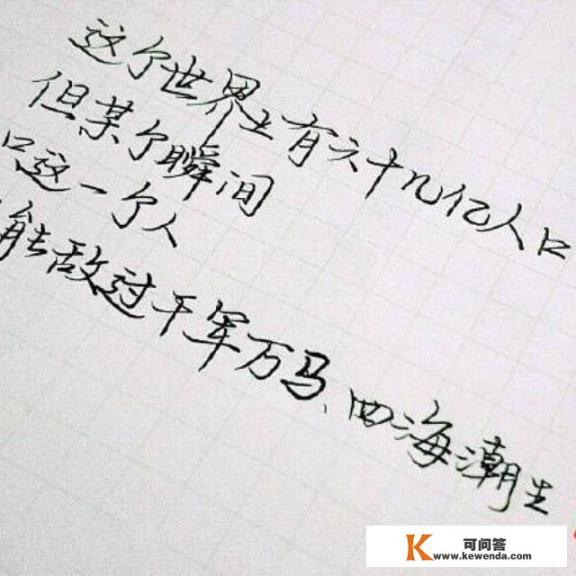 这个世界上有六十几亿人口
但某个瞬间
只这一个人
能敌过千军万马、四海潮生
K 可问答
www.kewenda.com